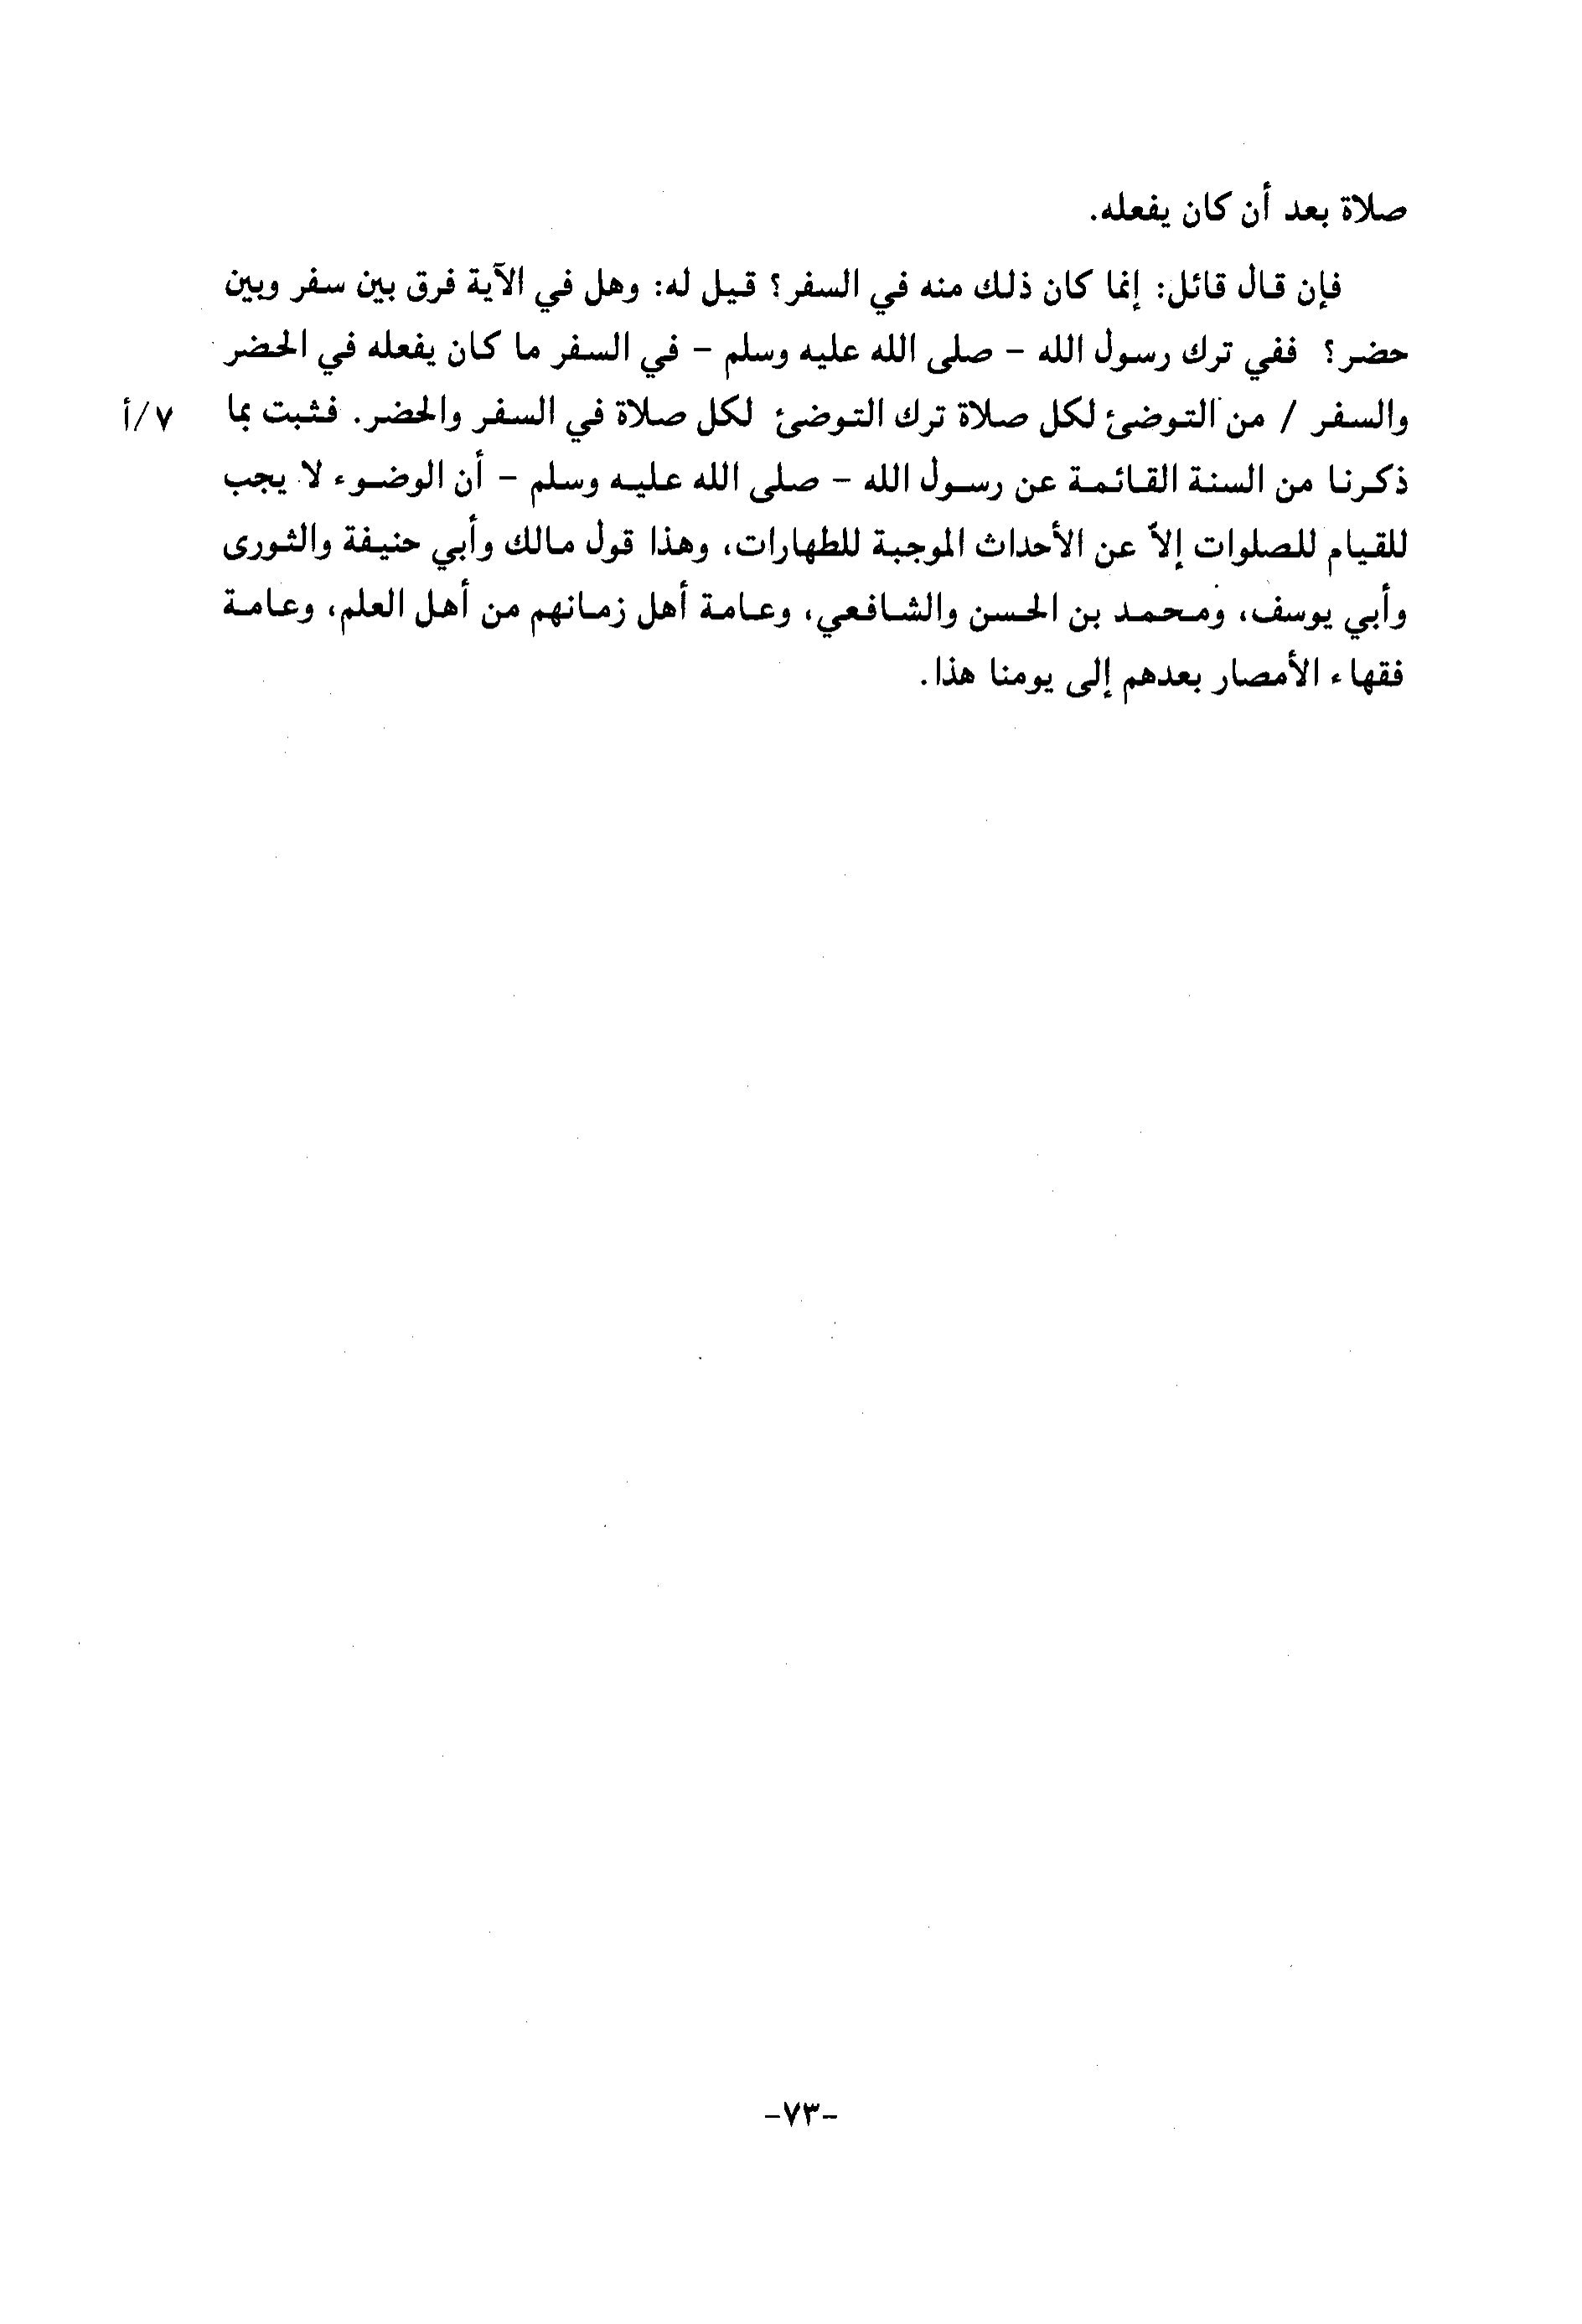 صلاة بعد أن كان يفعله.
فإن قال قائل: إنما كان ذلك منه في السفر؟ قيل له: وهل في الآية فرق بين سفر وبين
حضر؟ ففي ترك رسول الله - صلى الله عليه وسلم - في السفر ما كان يفعله في الحضر
والسفر / من التوضئ لكل صلاة ترك التوضئ لكل صلاة في السفر والحضر. فثبت بما ٧/أ
ذكرنا من السنة القائمة عن رسول الله - صلى الله عليه وسلم - أن الوضوء لا يجب
للقيام للصلوات إلاّ عن الأحداث الموجبة للطهارات، وهذا قول مالك وأبي حنيفة والثورى
وأبي يوسف، ومحمد بن الحسن والشافعي، وعامة أهل زمانهم من أهل العلم، وعامة
فقهاء الأمصار بعدهم إلى يومنا هذا.
-٧٣-